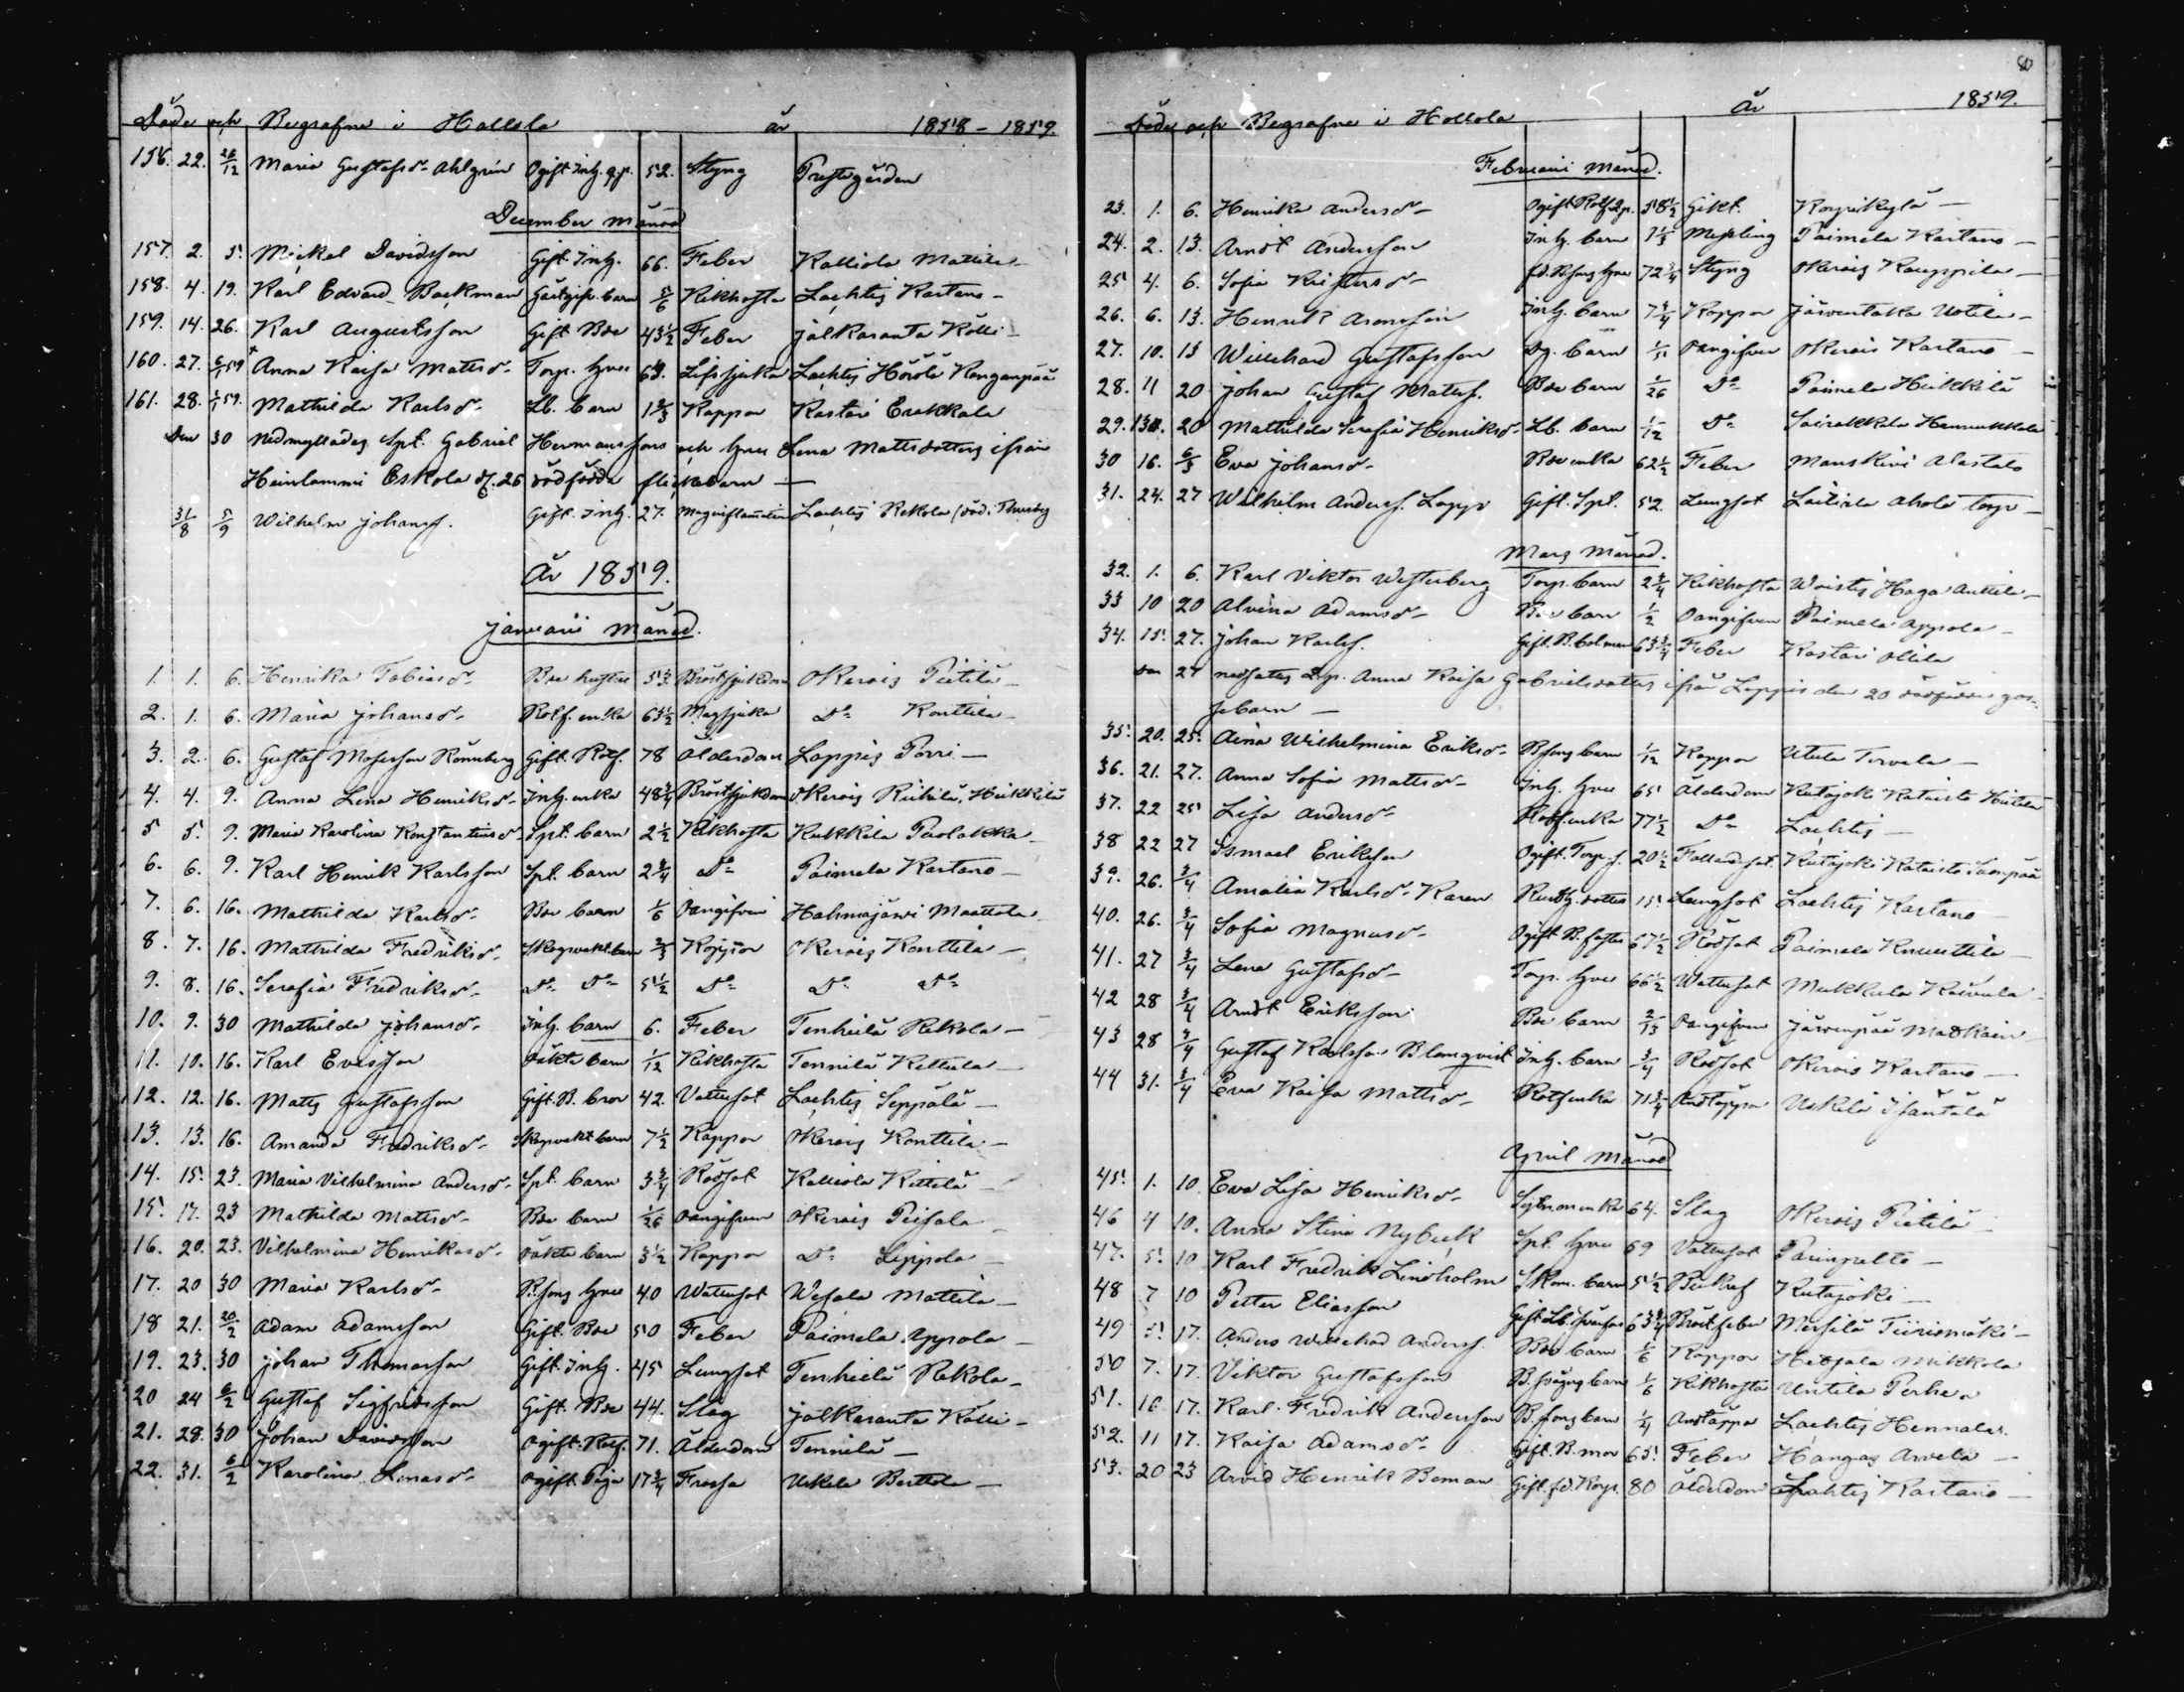 Döde och Begrafne i Hollola år 1858 - 1859
156. 22. 26/12 Maria Gustafsd. Ahlgrén Ogift Inh. q.p. 52. Styng Prestegården
December månad
157 2. 5. Mickel Davidsson Gift. Inh. 66. Feber Kalliola Mattila
158. 4. 19. Karl Edvard Backman Gästgifv. barn 5/6 Kikhosta Lachtis Kartano
159. 14. 26. Karl Augustsson Gift Bde 43 1/2 Feber Jalkaranta Kölli
160. 27. 6/1 59 Anna Kaisa Mattsd. Torp. hvu 63. Lifssjuka Lachtis Hörölä Kanganpää
161. 28. 1/1 59. Mathilda Karlsd. Lb. barn 1 2/3 Koppor Kastari Erakkala
Den 30 nedmyllades Spt. Gabriel Hermanssons och hvu Lena Mattsdotters ifrån
Heinlammi Eskola d. 26 dödfödda flickebarn
31/8 5/9 Wilhelm Johanss. Gift. Inh. 27. Maginflamation Lachtis Rekola (död. Thusby
År 1859.
Januarii månad.
1. 1. 6. Henrika Tobiasd. Bde hustru 53. Bröstsjukdom Okerois Pietilä
2. 1. 6. Maria Johansd. Rotf. enka 63 1/2 Magsjuka Do Konttila
3. 2. 6. Gustaf Mosesson Rönnberg Gift. Rotf. 78 Ålderdom Loppis Porri
4. 4. 9. Anna Lena Henriksd. Inh. enka 48 3/4 Bröstsjukdom Okerois Riihilä, Heikkilä
5 5. 9. Maria Karolina Konstantinsd. Spt. barn 2 1/2 Kikhosta Kukkila Paolakka
6. 6. 9. Karl Henrik Karlsson Spt. barn 2 3/4 Do Paimela Kartano
7. 6. 16. Mathilda Karlsd. Bde barn 1/6 Oangifven Hahmajärvi Maattola
8. 7. 16. Mathilda Fredriksd. Skogsvakt. barn 2/3 Koppor Okerois Konttila
9. 8. 16. Serafia Fredriksd. Do Do 5 1/2 Do Do Do
10. 9. 30 Mathilda Johansd. Inh. barn 6. Feber Tenhiilä Rekola
11. 10. 16. Karl Evasson Oäkta barn 1/12 Kikhosta Tennilä Kettula
12. 12. 16. Matts Gustafsson Gift. B. bror 42. Vattusot Lachtis Seppälä
13. 13. 16. Amanda Fredriksd. Skogsvakt barn 7 1/2 Koppor Okerois Konttila
14. 15. 23. Maria Vilhelmina Andersd. Spt. barn 3 3/4 Rödsot Kalliola Kettilä
15. 17. 23 Mathilda Mattsd. Bde barn 1/26 Oangifven Okerois Peisala
16. 20. 23. Vilhelmina Henrikasd. Oäkta barn 3 1/2 Koppor Do Seppola
17. 20 30 Maria Karlsd. B. sons hvu 40 Wattusot Wesala Mattila
18 21. 20/2 Adam Adamsson Gift. Bde 50 Feber Paimela Uppola
19. 23. 30 Johan Thomasson Gift. Inh. 45 Lungsot Tenhiilä Rekola
20 24 6/2 Gustaf Sigfridsson Gift. Bde 44. Slag Jalkaranta Kölli
21. 28. 30 Johan Davidsson Ogift. Rotf. 71. Ålderdom Tennilä
22. 31. 6/2 Karolina Lenasd. Ogift. Piga 17 3/4 Frossa Uskila Berttola
80
Döde och Begrafne i Hollola År 1859.
Februarii månad.
23. 1. 6. Henrika Andersd. Ogift Rotf. 58 1/2 Gikt. Korpikylä
24. 2. 13. Arndt Andersson Inh. barn 1 1/3 Messling Paimela Kartano
25 4. 6. Sofia Kristersd. 72 3/4 Styng Okerois Kauppila
26. 6. 13. Henrik Aronsson Inh. barn 7 3/4 Koppor Järventaka Uotila
27. 10. 13 Willehard Gustafsson Dg. barn 1/51 Oangifven Okerois Kartano
28. 11 20 Johan Gustaf Mattss. Bde barn 1/26 Do Paimela Heikkilä
29. 13. 20 Mathilda Serafia Henriksd. Lb. barn 1/12 Do Sairakkala Hannukkala
30 16. 6/3 Eva Johansd. Bde enka 62 1/2 Feber Manskivi Alastalo
31. 24. 27 Wilhelm Anderss. Lapp Gift. Spt. 52. Lungsot Laitiala Ahola torp
Mars månad.
32. 1. 6. Karl Viktor Westerberg Torp. barn 2 3/4 Kikhosta Woistis Haga Anttila
33 10 20 Alvina Adamsd. Bde barn 1/2 Oangifven Paimela Uppola
34. 15. 27. Johan Karlss. Gift. B. bolman 63 3/4 Feber Kastari Ollila
Den 27 nedsattes Anna Kaisa Gabrielsdotters ifrån Loppis den 20 dödfödda gos-
sebarn
35. 20. 25. Aina Wilhelmina Eriksd. B. sons barn 1/12 Koppor Utula Torvala
36. 21. 27. Anna Sofia Mattsd. Inh. hvu 65 Ålderdom Kutajoki Kataisto Hietala
37. 22 25 Lisa Andersd. Rotf. enka 77 1/2 Do Lachtis
38 22 27 Ismael Eriksson Ogift. Torp. 20 1/2 Fallandesot. Kutajoki Kataisto Sampää
39. 26. 3/4 Amalia Karlsd. Karen dotter 15. Lungsot Lachtis Kartano
40. 26. 3/4 Sofia Magnusd. Ogift B. faster 67 1/2 Rödsot Paimela Knuuttila
41. 27 3/4 Lena Gustafsd. Torp. hvu 66 1/2 Wattusot Mukkula Koivula
42 28 3/4 Arndt Eriksson Bde barn 2/13 Oangifven Järvenpää Matkain
43 28 3/4 Gustaf Karlsson Blomqvist Inh. barn 3/4 Rödsot Okerois Kartano
44 31. 3/4 Eva Kaisa Mattsd. Rotf. enka 71 3/4 Andtäppa Uskila Isäntilä
April månad
45. 1. 10 Eva Lisa Henriksd. enka 64. Slag Okerois Pietilä
46 4 10. Anna Stina Nybeck Spt. hvu 69 Vattusot Paringelto
47. 5. 10 Karl Fredrik Lindholm Skom. barn 5 1/2 Kutajoki
48 7 10 Petter Eliasson Gift 63 3/4 Bröstfeber Mersilä Tiirismäki
49 5. 17. Anders Willehad Anderss. Bde barn 1/6 Koppor Hedsala Mikkola
50 7. 17. Viktor Gustafsson B. barn 1/6 Kikhosta Untila Perhe
51. 10 17. Karl Fredrik Andersson B. sons barn 1/4 Andtäppa Lachtis Hennala
52. 11 17. Kaisa Adamsd. Gift. B. mor 65. Feber Hangas Arvela
53. 20 23 Arvid Henrik Boman Gift. f.d. Korp. 80 Ålderdom Lachtis Kartano